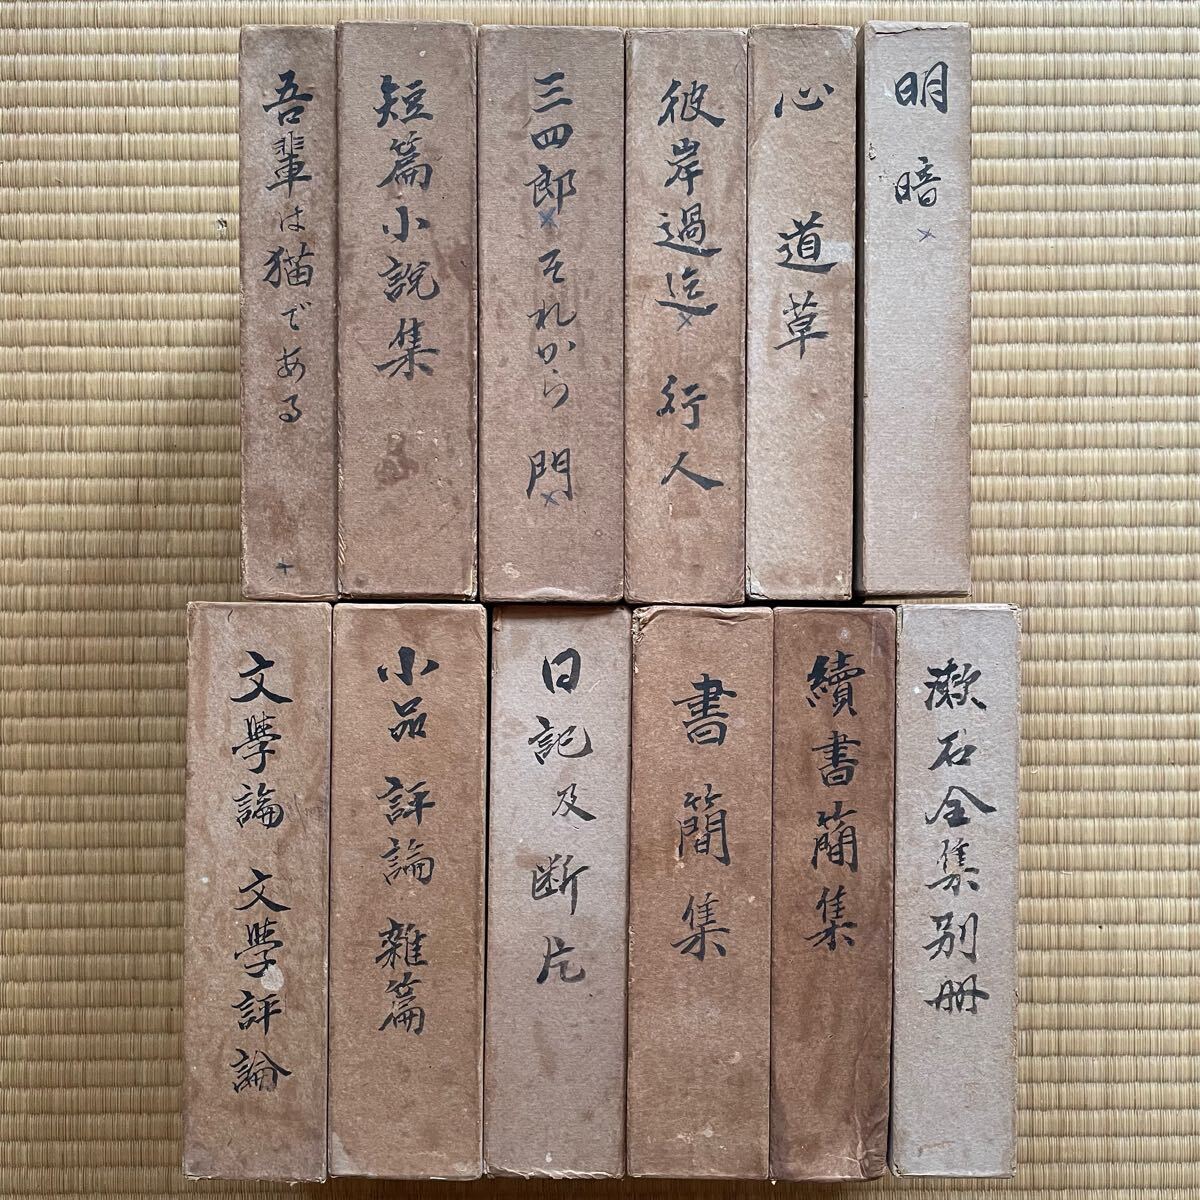 吾輩は猫である
短篇小說集
三四郎 それから 門
彼岸過迄 行人
心 道草
明暗
文學論 文學評論
小品 評論 雜篇
日記及斷片
書簡集
續書簡集
漱石全集別冊